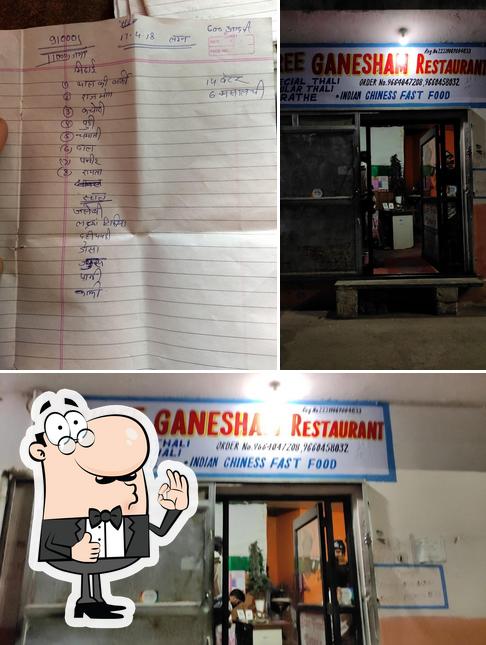 91000/
11000/
17.4.18 लग्न
600 आदमी
मिठाई
① दाल की बर्फी
② राजभोग
③ कचोरी
④ पुडी
⑤ चपाती
⑥ दाल
⑦ पनीर
⑧ रायता
स्टाल
जलेबी
डोसा
पानी
काफी
14 वेटर
6 मसालची
REE GANESHAM RESTAURANT
ECIAL THALI
ULAR THALI
RATHE
ORDER No.9664047208,9660458032
• INDIAN CHINESS FAST FOOD
E GANESHA RESTAURANT
THALI
ALI
ORDER No.9664047208,9660458032
• INDIAN CHINESS FAST FOOD